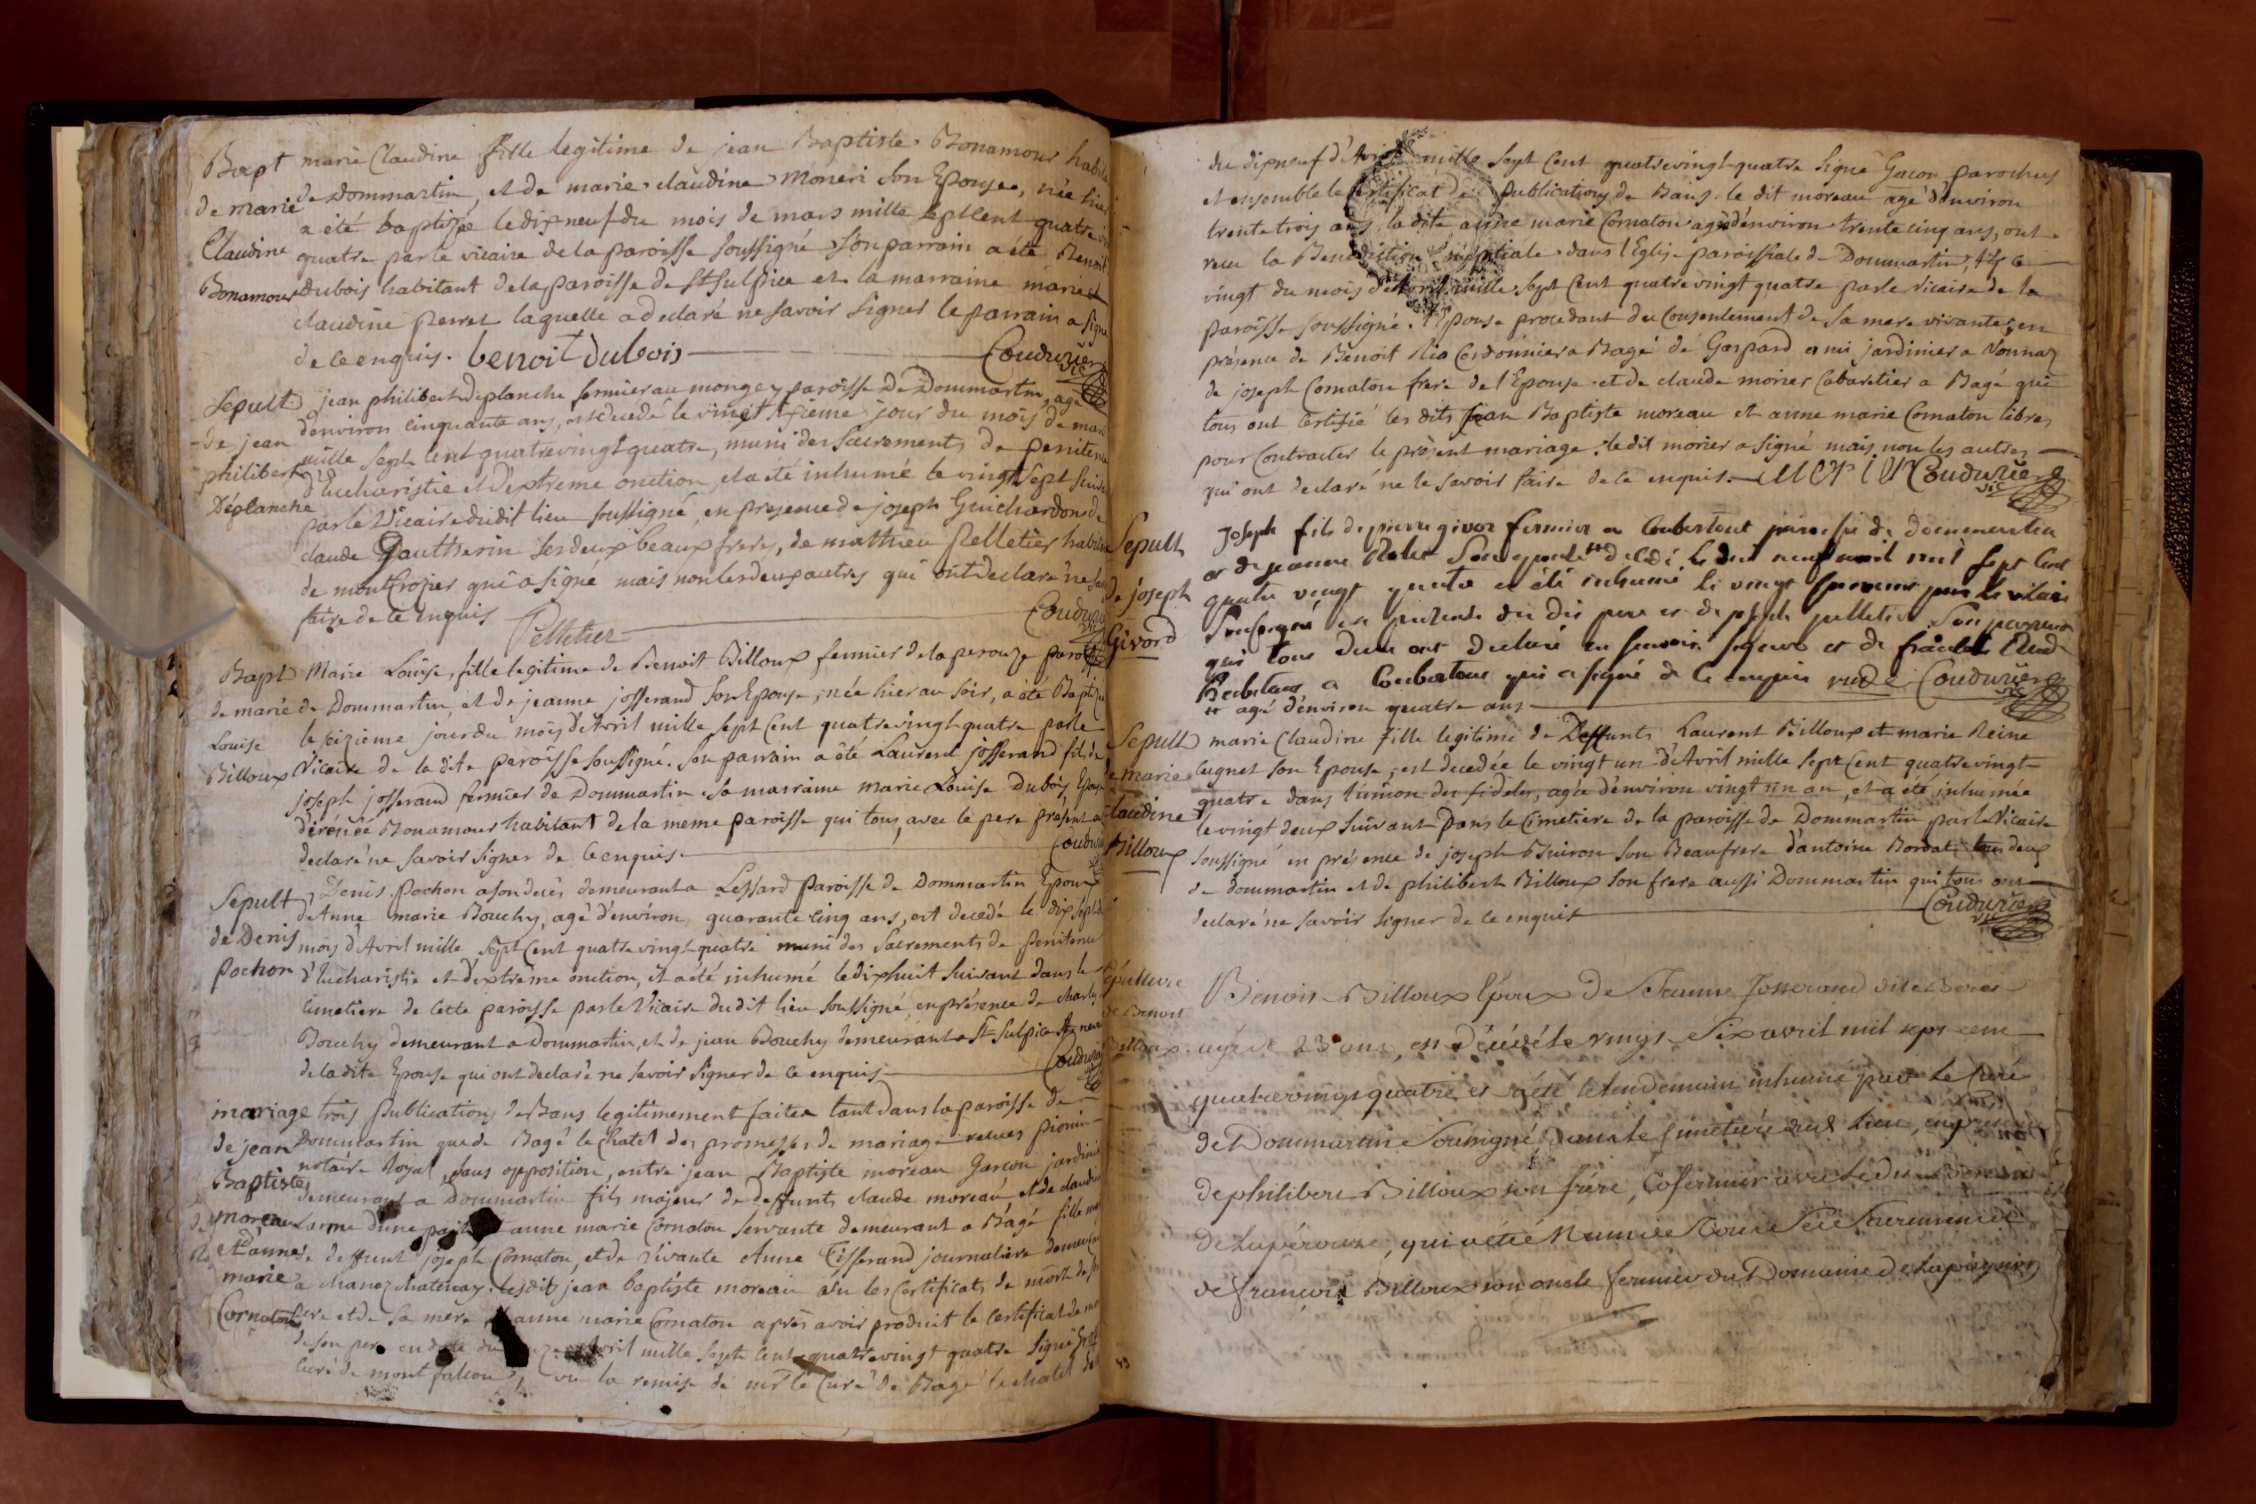 Bapt marie Claudine fille legitime de jean Baptiste Bonamour habit
de marie de Dommartin, et de marie claudine Moneri son Epouse, née hier
a été baptisée le dix neuf du mois de mars mille sept cent quatre
Claudine quatre par le vicaire de la paroisse soussigné son parrain a été Benoit
Bonamour dubois habitant de la paroisse de St Sulpice et la marraine marie
claudine perret laquelle a declaré ne savoir signer le parrain a signé
de ce enquis. benoit dubois Couduriér vic
Sepult jean philibert Deplanche fermier au mongey paroisse de Dommartin, agé
d'environ cinquante ans, est decedé le vingt jour du mois de mars
de jean mille sept cent quatre vingt quatre, muni des sacrements de penitence
philibert d'Eucharistie et d'extreme onction, et a été inhumé le vingt sept suivant
Déplanche par le Vicaire du dit lieu soussigné, en presence de joseph Guichardon de
claude Gautherin ses deux beaux freres, de mathieu Pelletier habitant
de montfrozier qui a signé mais non les deux autres qui ont declaré ne
faire de ce enquis Pelletier Couduriér vic
Bapt Marie Louise, fille legitime de Benoit Billoux fermier de la perouze paroisse
de marie de Dommartin, et de jeanne josserand son Epouse, née hier au soir, a été Baptizé
Louise le seizieme jour du mois d'Avril mille sept cent quatre vingt quatre par le
Billoux Vicaire de la dite paroisse soussigné. son parrain a été Laurent josserand fils de
joseph josserand fermier de Dommartin. sa marraine marie Louise Dubois Epouse
d'irénéé Bonamour habitant de la meme paroisse qui tous, avec le pere present a
declaré ne savoir signer de ce enquis. Coudurier
Sepult Denis pochon a son deces demeurant a Lessard paroisse de Dommartin Epoux
d'Anne marie Bouchy, agé d'environ quarante cinq ans, est decedé le dix sept du
de Denis mois d'Avril mille sept cent quatre vingt quatre muni des Sacrements de penitence
pochon d'Eucharistie et d'extreme onction, et a été inhumé le dix huit suivant dans le
cimetiere de cette paroisse par le Vicaire du dit lieu soussigné, en présence de charles
Bouchy demeurant a Dommartin, et de jean Bouchy demeurant a St Sulpice
de la dite Epouse qui ont declaré ne savoir signer de ce enquis Coudurier vic
mariage trois publications de Bans legitimement faites tant dans la paroisse de
de jean Dommartin que de Bagé le chatel des promesses de mariage recues
Baptiste notaire Royal, sans opposition, entre jean Baptiste moreau Garcon jardinier
demeurant a Dommartin fils majeur de deffunts claude moreau et de claudine
moreau d'une part et anne marie Cornaton servante demeurant a Bagé fille
et d'anne de deffunt joseph Cornaton, et de vivante Anne Tisserand journaliere demeurant
marie a chanoz chatenay. le dit jean baptiste moreau vu les certificats de mort de
Cornaton pere et de sa mere et anne marie Cornaton après avoir produit le certificat de mort
de son pere en date du avril mille sept cent quatre vingt quatre signé
curé de mont falcon, vu la remise de mr le Curé de Bagé le chatel
du dixneuf d'Avril mille sept cent quatre vingt quatre signé Gacon parochus
et ensemble le certificat de publications de Bans. le dit moreau agé d'environ
trente trois ans la dite anne marie Cornaton agée d'environ trente cinq ans, ont
recu la Benediction nuptiale dans l'Eglise paroissiale de Dommartin, le
vingt du mois d'Avril mille sept cent quatre vingt quatre par le vicaire de la
paroisse soussigné. l'Epouse procedant du Consentement de sa mere vivante, en
présence de Benoit Rio Cordonnier a Bagé de Gaspard ami jardinier a Vonnaz
de joseph Cornaton frere de l'Epouse et de claude morier Cabaretier a Bagé qui
tous ont certifié les dits jean Baptiste moreau et anne marie Cornaton libres
pour Contracter le présent mariage. le dit morier a signé mais non les autres
qui ont declaré ne le savoir faire de ce enquis. Coudurier vic
Sepult joseph fils de pierre givor fermier a Coubertout paroisse de dommartin
et de jeanne son epouse decedé le dix neuf avril mil sept cent
de joseph quatre vingt quatre et été inhumé le vingt par le vicaire
Givord soussigné en presence du dit pere et de pelletier son
qui tous deux ont declaré ne savoir signer et de
habitant a Coubertout qui a signé de ce enquis rude Coudurier vic
agé d'environ quatre ans
Sepult marie Claudine fille legitime de Deffunts Laurent Billoux et marie Reine
de marie cugnet son Epouse, est decedée le vingt un d'Avril mille sept Cent quatre vingt
quatre dans l'union des fideles, agée d'environ vingt un an, et a été inhumée
claudine le vingt deux suivant dans le cimetiere de la paroisse de Dommartin par le Vicaire
Billoux soussigné en présence de joseph Buiron son Beaufrere d'antoine Bordat tous deux
de dommartin et de philibert Billoux son frere aussi Dommartin qui tous ont
declaré ne savoir signer de ce enquis Coudurier vic
Sépulture Benoit Billoux Epoux de Jeanne Josserand
de Benoit
Billoux agé de 23 ans, est décédé le vingt Six avril mil sept cent
quatre vingt quatre, et a été le lendemain inhumé par le Curé
de Dommartin Soussigné, dans le Cimetiere du lieu, en presence
de philibert Billoux son frere, cofermier avec le dit Benoit
de Laperouse, qui a été Muni de tous Ses Sacrements
de francois Billoux son oncle fermier du Domaine de